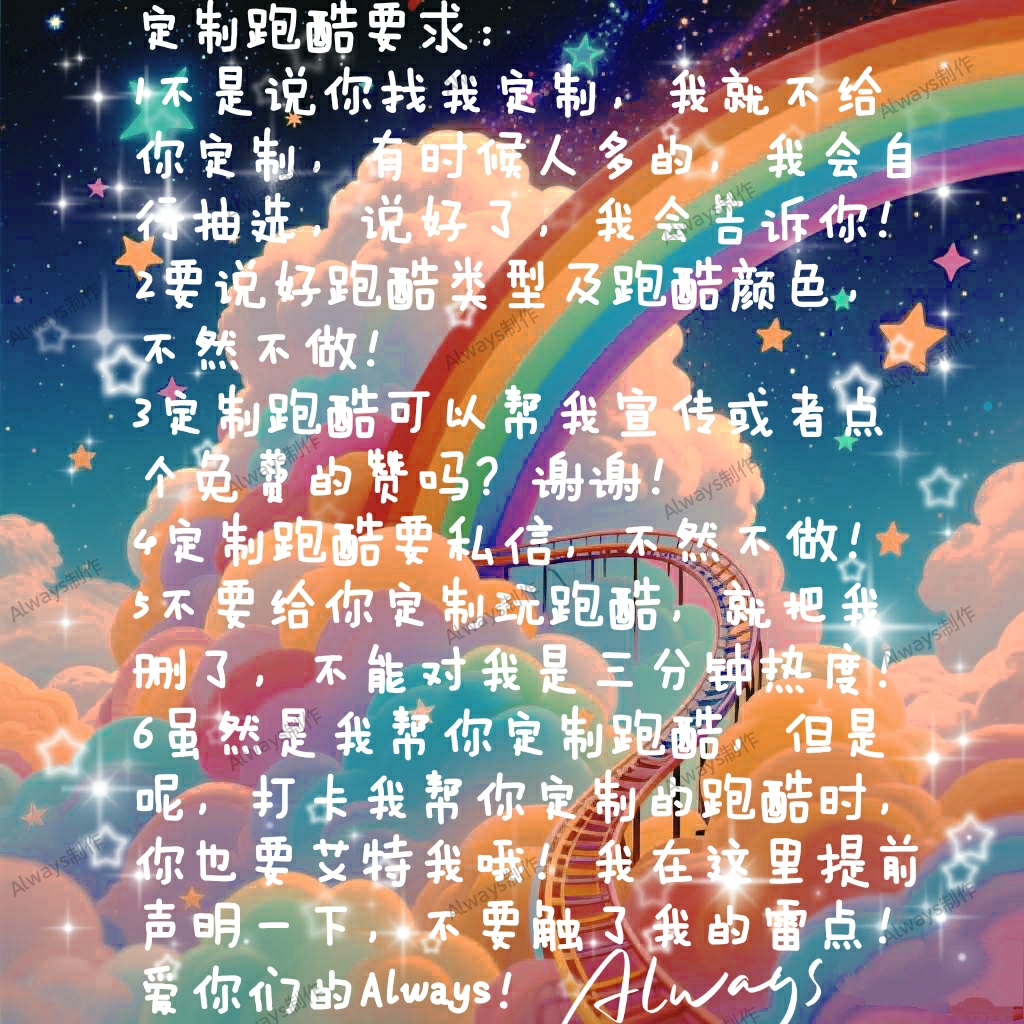 定制跑酷要求：
1不是说你找我定制，我就不给
你定制，有时候人多的，我会自
行抽选，说好了，我会告诉你！
2要说好跑酷类型及跑酷颜色，
不然不做！
3定制跑酷可以帮我宣传或者点
个免费的赞吗？谢谢！
4定制跑酷要私信，不然不做！
5不要给你定制玩跑酷，就把我
删了，不能对我是三分钟热度！
6虽然是我帮你定制跑酷，但是
呢，打卡我帮你定制的跑酷时，
你也要艾特我哦！我在这里提前
声明一下，不要触了我的雷点！
爱你们的Always！
Always
Always制作